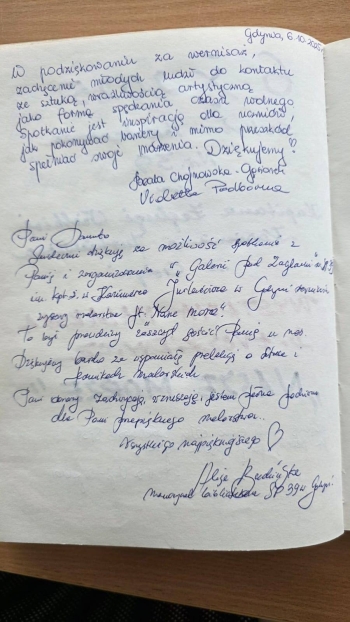 Gdynia, 6.10.2025r.
W podziękowaniu za wernisaż,
zachęcenie młodych ludzi do kontaktu
ze sztuką, wrażliwością artystyczną
jako formą spędzania czasu wolnego.
Spotkanie jest inspiracją dla uczniów,
jak pokonywać bariery i mimo przeszkód
spełniać swoje marzenia. Dziękujemy!
Beata Chojnowska-
Violetta Podborna
Pani
Serdecznie dziękuję za możliwość spotkania z
Panią i zorganizowania w "Galerii pod Żaglami" w SP 39
im. kpt. ż. w. Kazimierza Jurkiewicza w Gdyni
wystawy malarstwa pt. "Nane morze"
To był prawdziwy zaszczyt gościć Panią u nas.
Dziękujemy bardzo za wspaniałą prelekcję o sztuce i
technikach malarskich.
Pani obrazy zachwycają, wzruszają i jestem pełna podziwu
dla Pani przepięknego malarstwa.
Wszystkiego najpiękniejszego
Alicja
Nauczyciel SP 39 w Gdyni